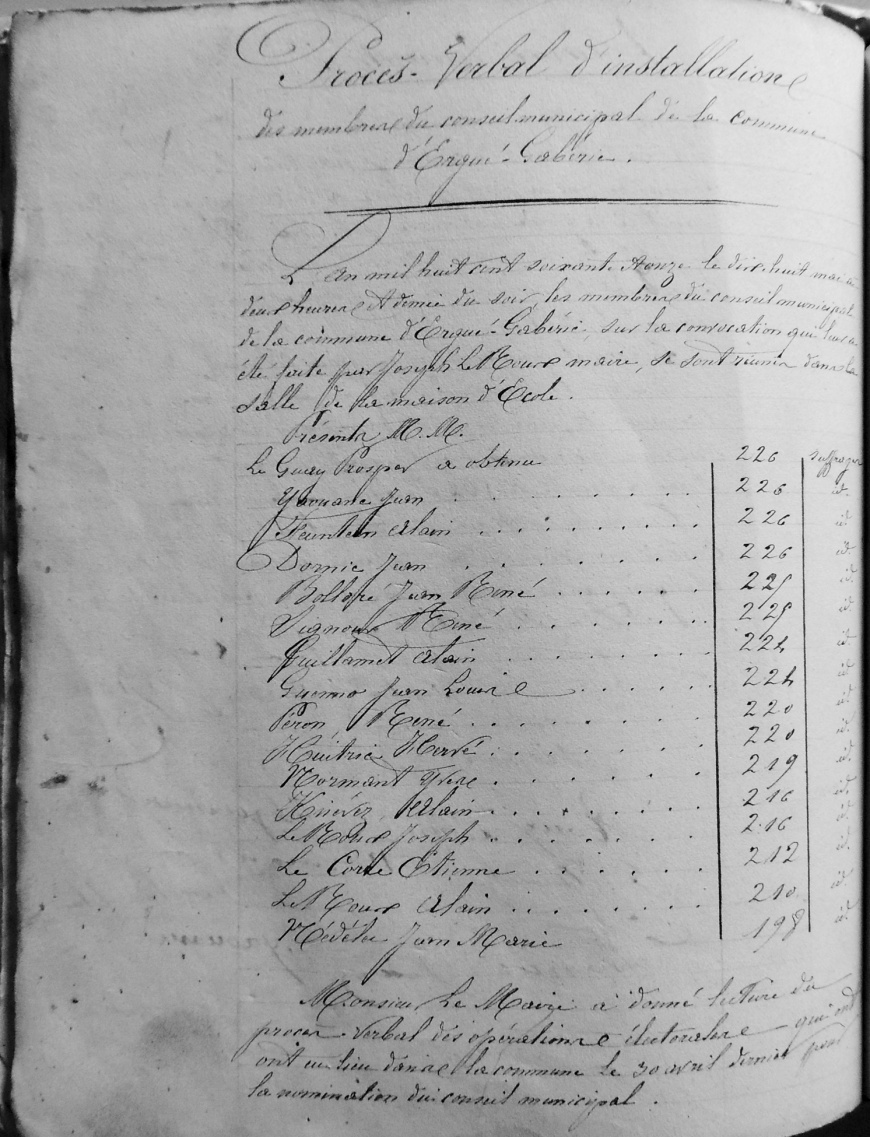 Procès-Verbal d'installation
des membres du conseil municipal de la commune
d'Ergué-Gabéric.
L'an mil huit cent soixante & onze le dix huit mai à
deux heures & demie du soir, les membres du conseil municipal
de la commune d'Ergué-Gabéric, sur la convocation qui leur a
été faite par Joseph Le Roux maire, se sont réunis dans la
salle de la maison d'Ecole.
Présents M.M.
Le Guay Prosper a obtenu 226 suffrages
Yaouanc Jean 226 id
Feunteun Alain 226 id
Dornic Jean 226 id
Bolloré Jean René 225 id
Vignoux René 225 id
Guillamet Alain 224 id
Guenno Jean Louis 224 id
Péron René 220 id
Huitric Hervé 220 id
Normant Yves 219 id
Kinévez Alain 216 id
Le Roux Joseph 216 id
Le Corre Etienne 212 id
Le Roux Alain 210 id
Nédélec Jean Marie 198 id
Monsieur Le Maire a donné lecture du
procès-verbal des opérations électorales qui ont
ont eu lieu dans la commune le 30 avril dernier pour
la nomination du conseil municipal.